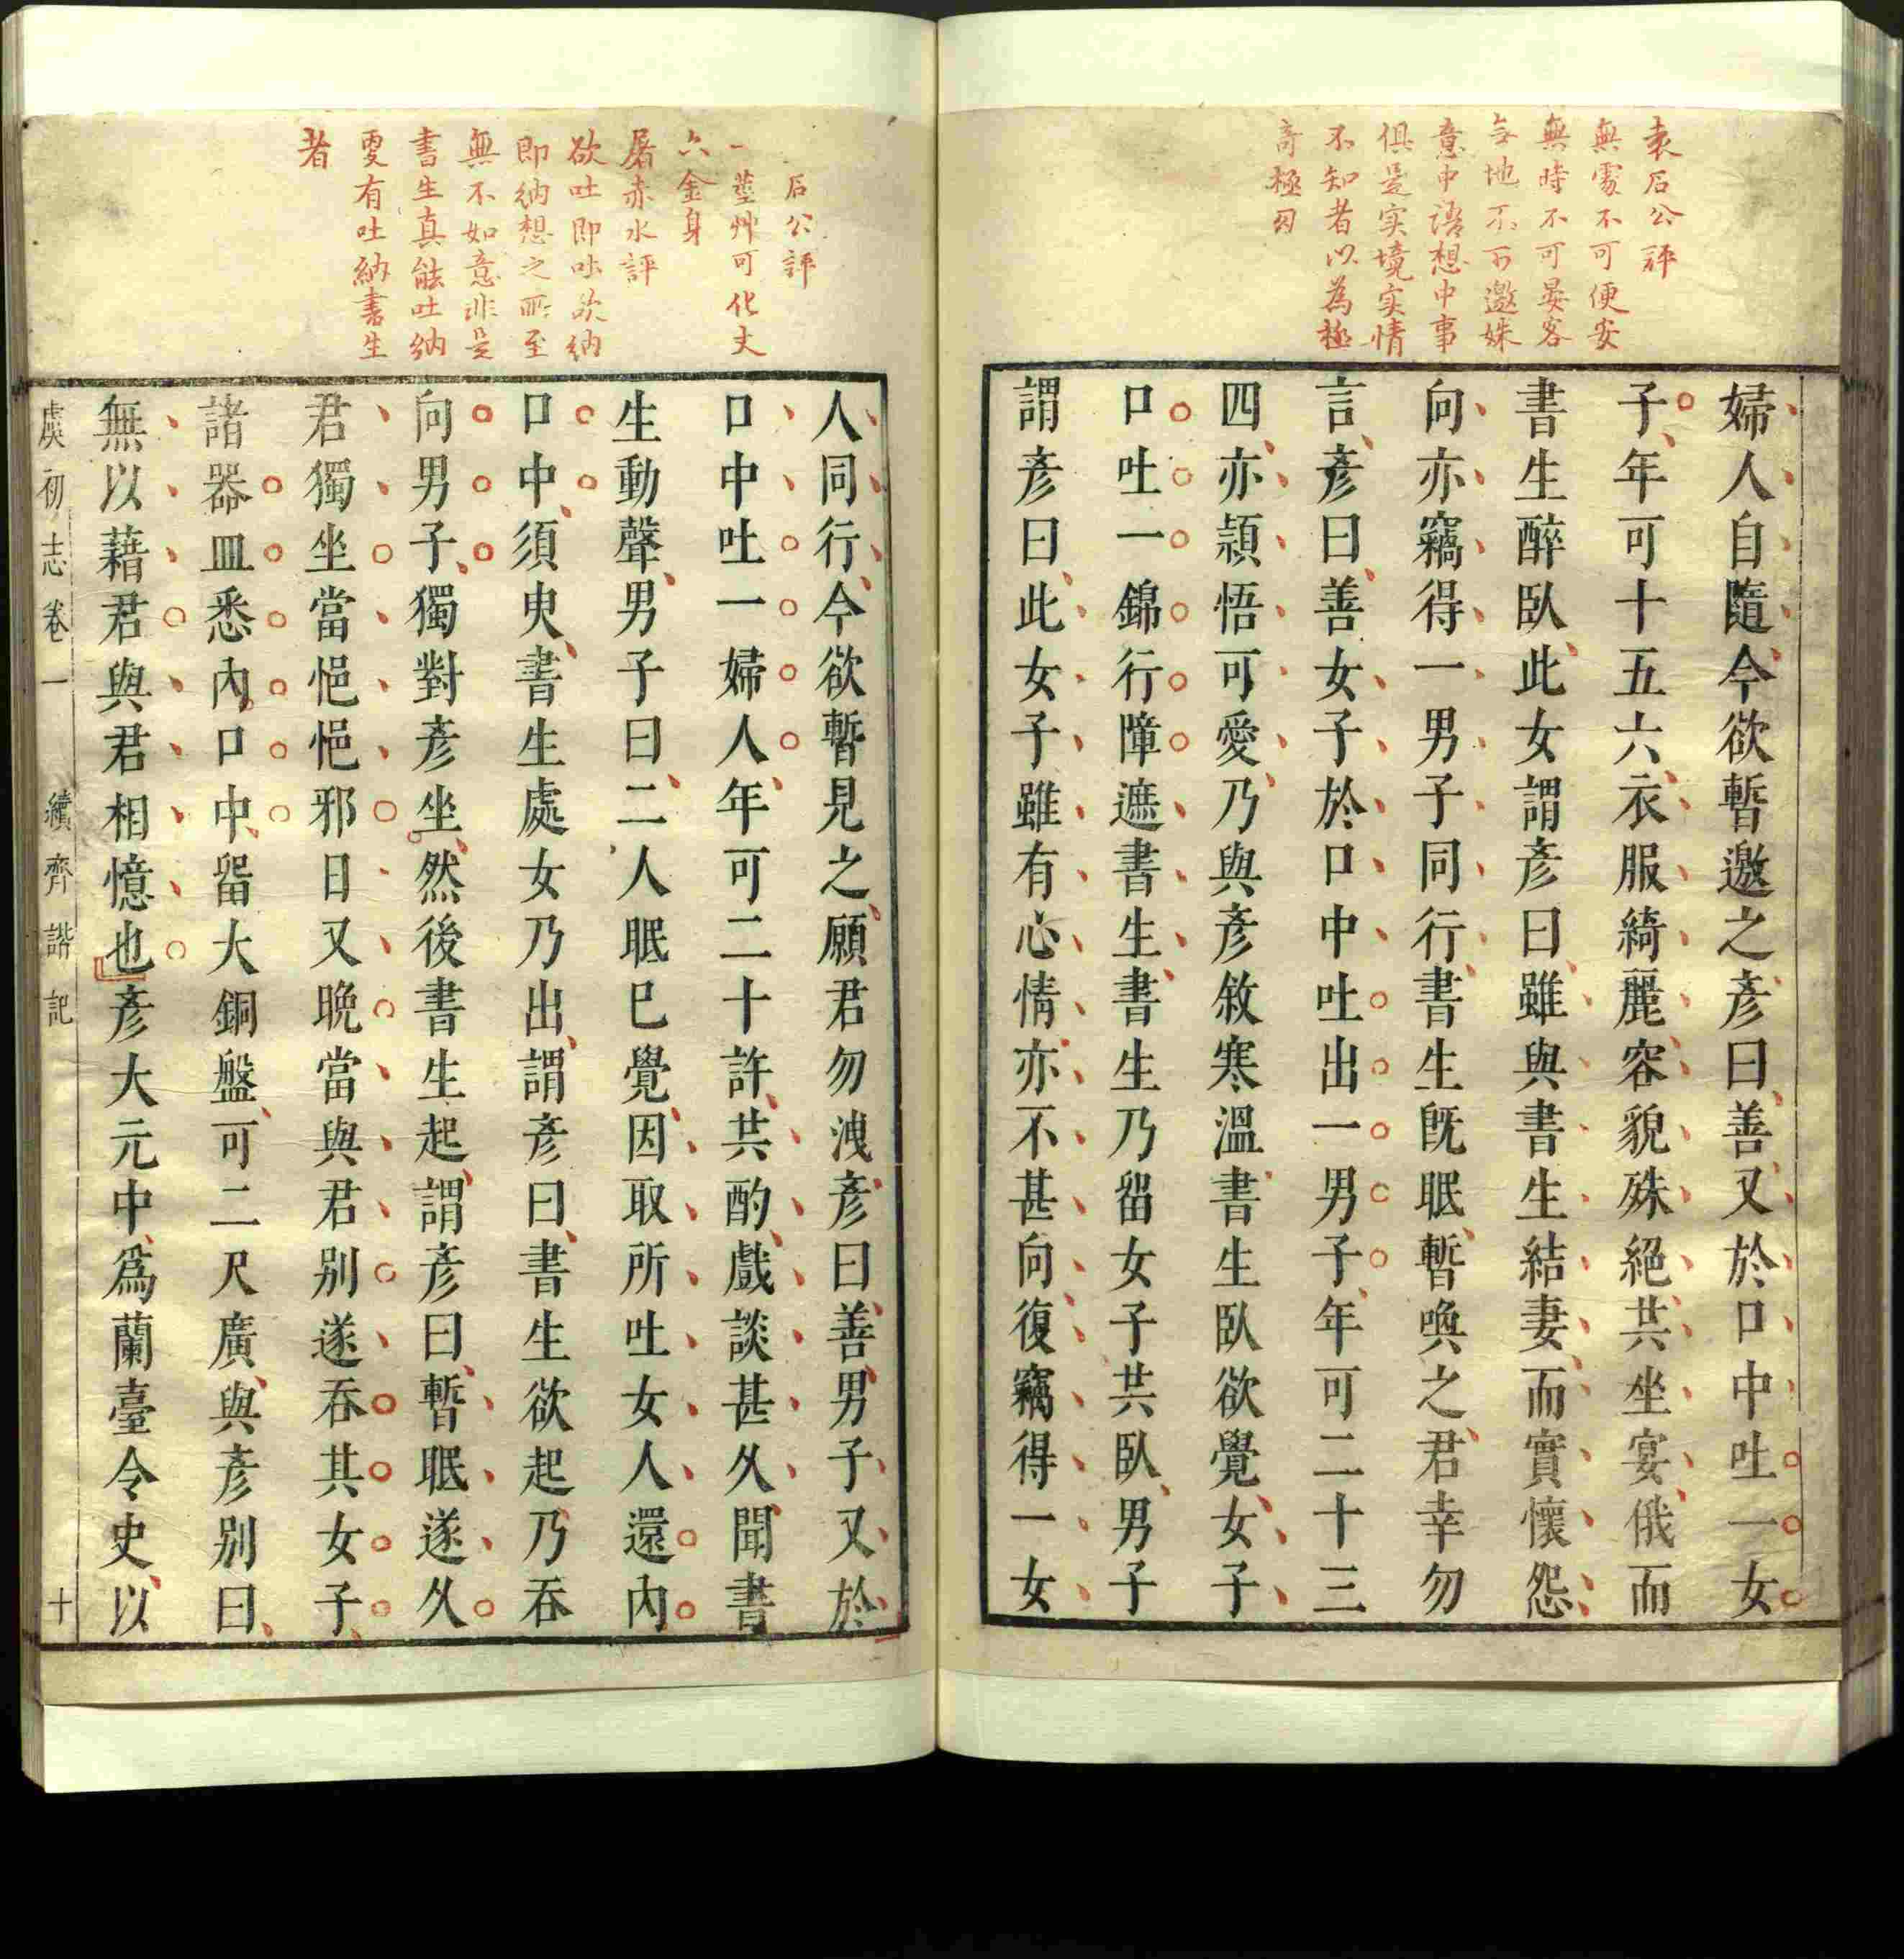 袁石公評
無處不可便安
無時不可晏客
無地不可邀姝
意中語想中事
俱是实境实情
不知者以為極
奇極幻
婦人自隨今欲暫邀之彥曰善又於口中吐一女
子年可十五六衣服綺麗容貌殊絕共坐宴俄而
書生醉臥此女謂彥曰雖與書生結妻而實懷怨
向亦竊得一男子同行書生旣眠暫喚之君幸勿
言彥曰善女子於口中吐出一男子年可二十三
四亦頴悟可愛乃與彥敘寒溫書生臥欲覺女子
口吐一錦行障遮書生書生乃留女子共臥男子
謂彥曰此女子雖有心情亦不甚向復竊得一女
石公評
一莖艸可化丈
六金身
屠赤水評
欲吐即吐欲納
即納想之所至
無不如意非是
書生真能吐納
更有吐納書生
者
人同行今欲暫見之願君勿洩彥曰善男子又於
口中吐一婦人年可二十許共酌戲談甚久聞書
生動聲男子曰二人眠已覺因取所吐女人還內
口中須臾書生處女乃出謂彥曰書生欲起乃吞
向男子獨對彥坐然後書生起謂彥曰暫眠遂久
君獨坐當悒悒邪日又晚當與君別遂吞其女子
諸器皿悉內口中留大銅盤可二尺廣與彥別曰
無以藉君與君相憶也彥大元中爲蘭臺令史以
虞初志卷一 續齊諧記 十